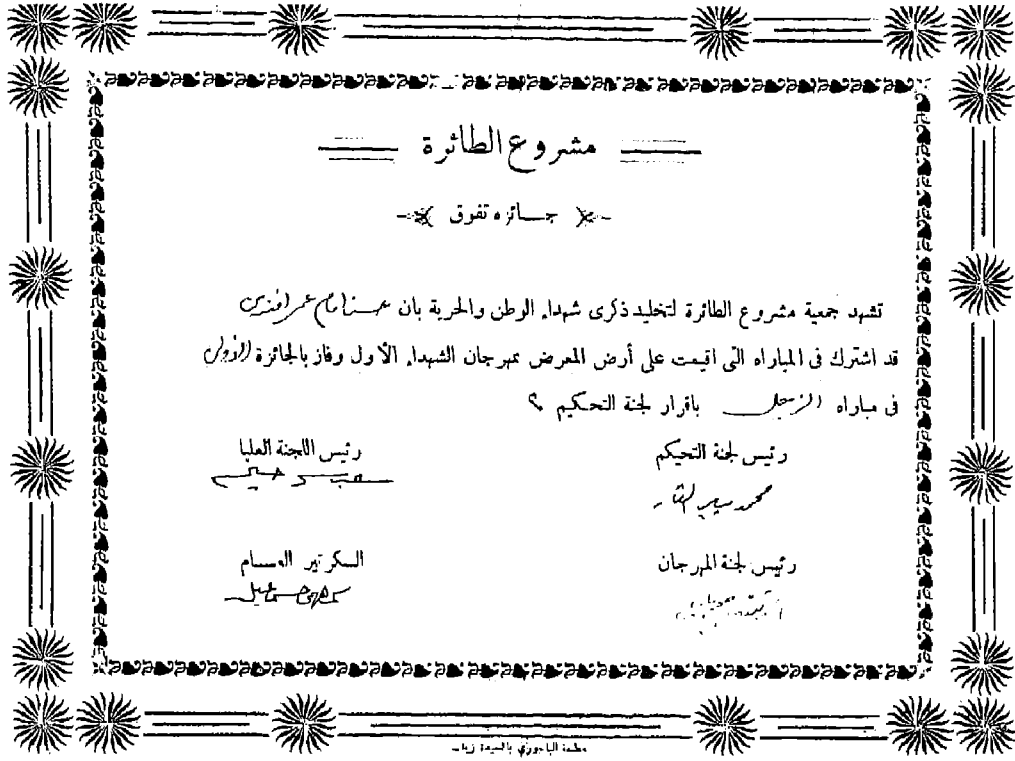 مشروع الطائرة
جائزه تفوق
تشهد جمعية مشروع الطائرة لتخليد ذكرى شهداء الوطن والحرية بان امام عمر افندى
قد اشترك فى المباراه التى اقيمت على أرض المعرض بمهرجان الشهداء الأول وفاز بالجائزة الأولى
فى مباراه الزجل باقرار لجنة التحكيم
رئيس لجنة التحيكم
رئيس اللجنة العليا
محمد
سيد حسين
رئيس لجنة المهرجان
السكرتير العام
مطبعة الباجوري بالسيدة زينب